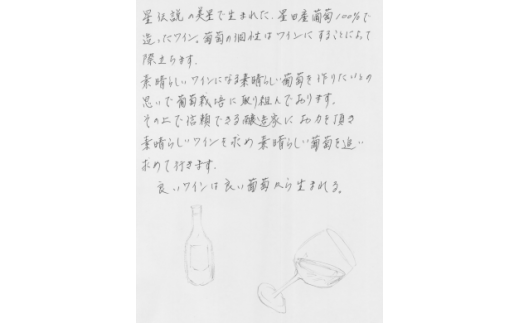 星伝説の美星で生まれた、星田産葡萄100%で
造ったワイン。葡萄の個性はワインにすることによって
際立ちます。
素晴らしいワインになる素晴らしい葡萄を作りたいとの
思いで葡萄栽培に取り組んでおります。
その上で信頼できる醸造家にお力を頂き
素晴らしいワインを求め素晴らしい葡萄を追い
求めて行きます。
良いワインは良い葡萄から生まれる。